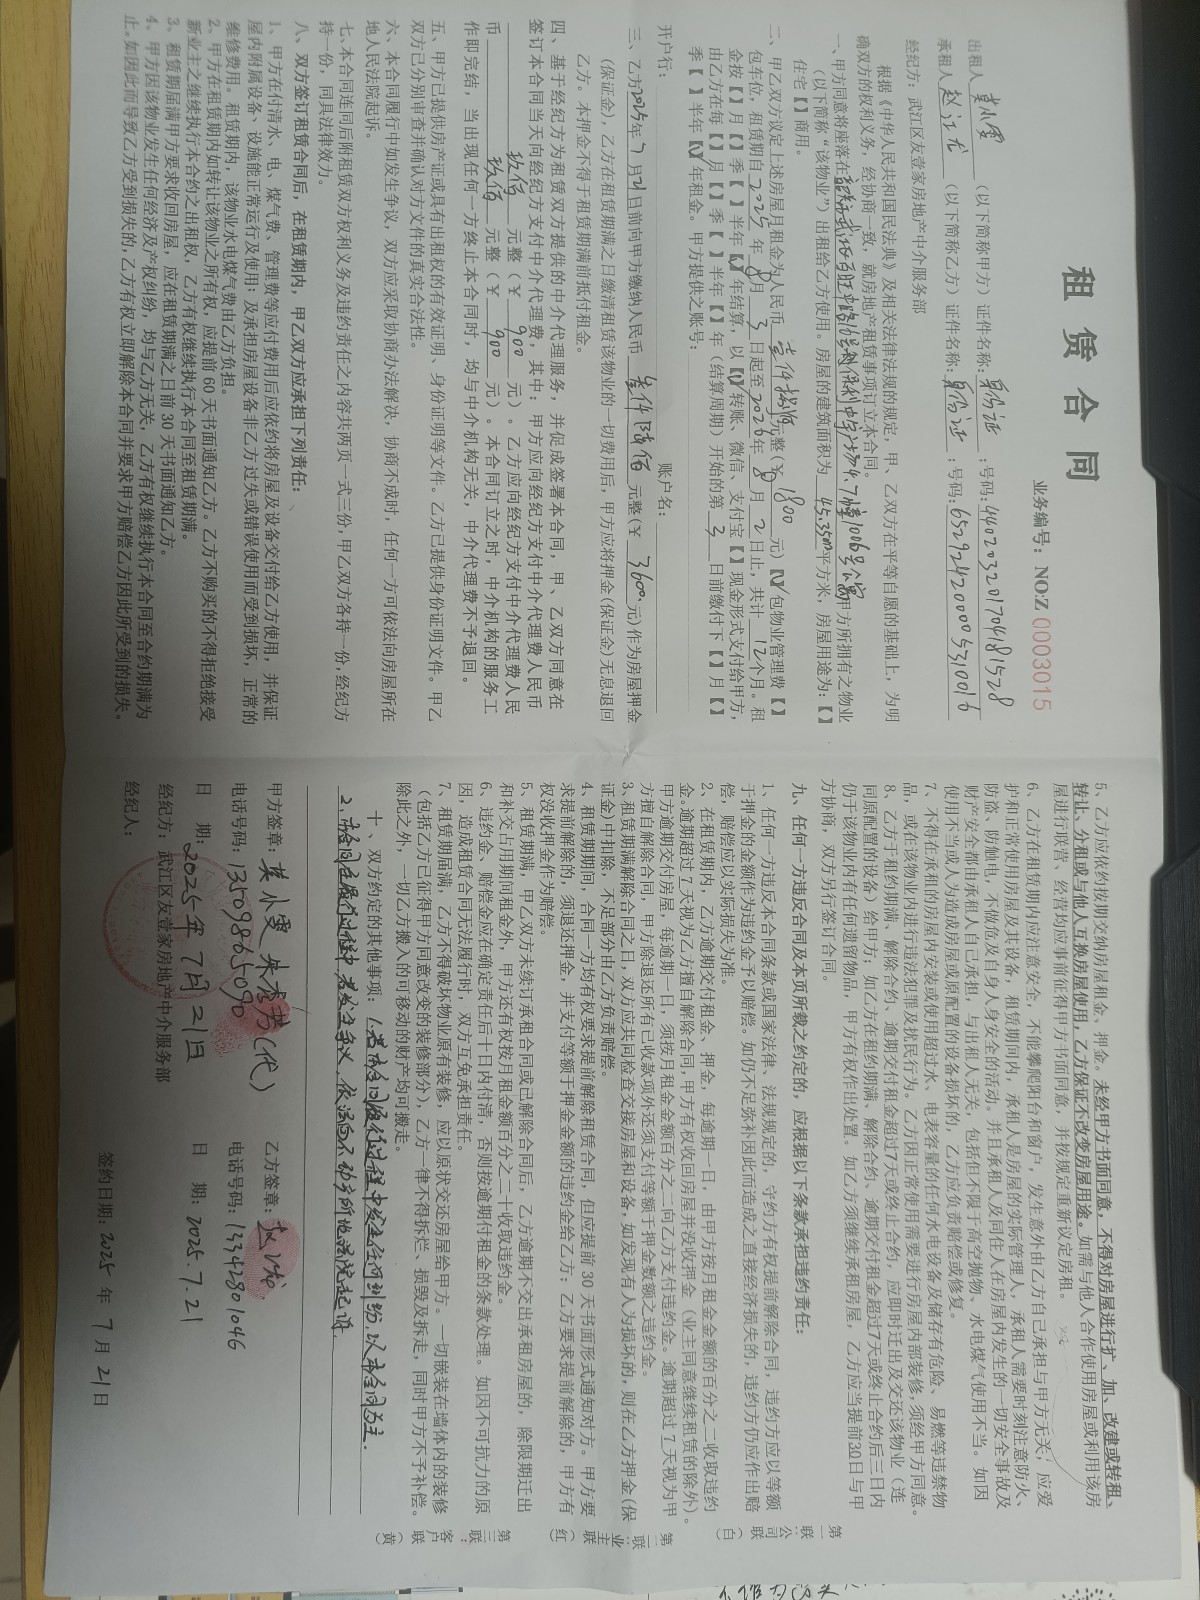 租赁合同
业务编号：NO:Z 0003015
出租人 （以下简称甲方）证件名称： 身份证 ：号码：440203201704181528
承租人 赵江龙 （以下简称乙方）证件名称： 身份证 ：号码：652924200005310016
经纪方：武江区友登家房地产中介服务部
根据《中华人民共和国民法典》及相关法律法规的规定，甲、乙双方在平等自愿的基础上，为明
确双方的权利义务，经协商一致，就房地产租赁事项订立本合同。
一、甲方同意将座落在 7幢1006号公寓 甲方所拥有之物业
（以下简称“该物业”）出租给乙方使用。房屋的建筑面积为 45.35m² 平方米，房屋用途为：【】
住宅【】商用。
二、甲乙双方议定上述房屋月租金为人民币 壹仟捌佰 元整（￥ 1800 元）【√】包物业管理费【】
包车位，租赁期自 2025 年 8 月 3 日起至 2026 年 8 月 2 日止，共计 12 个月。租
金按【】月【】季【】半年【√】年结算，以【√】转账、微信、支付宝【】现金形式支付给甲方，
由乙方在每【】月【】季【】半年【】年（结算周期）开始的第 3 日前缴付下【】月【】
季【】半年【√】年租金。甲方提供之账号：
开户行： 账户名：
三、乙方 2025 年 7 月 21 日前向甲方缴纳人民币 叁仟陆佰 元整（￥ 3600. 元）作为房屋押金
（保证金），乙方在租赁期满之日缴清租赁该物业的一切费用后，甲方应将押金（保证金）无息退回
乙方。本押金不得于租赁期满前抵付租金。
四、基于经纪方为租赁双方提供的中介代理服务，并促成签署本合同，甲、乙双方同意在
签订本合同当天向经纪方支付中介代理费，其中：甲方应向经纪方支付中介代理费人民币
玖佰 元整（￥ 900 元）。乙方应向经纪方支付中介代理费人民
币 玖佰 元整（￥ 900 元）。本合同订立之时，中介机构的服务工
作即完结，当出现任何一方终止本合同时，均与中介机构无关，中介代理费不予退回。
五、甲方已提供房产证或具有出租权的有效证明、身份证明等文件。乙方已提供身份证明文件。甲乙
双方已分别审查并确认对方文件的真实合法性。
六、本合同履行中如发生争议，双方应采取协商办法解决，协商不成时，任何一方可依法向房屋所在
地人民法院起诉。
七、本合同连同后附租赁双方权利义务及违约责任之内容共两页一式三份，甲乙双方各持一份，经纪方
持一份，同具法律效力。
八、双方签订租赁合同后，在租赁期内，甲乙双方应承担下列责任：
1、甲方在付清水、电、煤气费、管理费等应付费用后应依约将房屋及设备交付给乙方使用，并保证
屋内附属设备、设施能正常运行及使用；及承担房屋设备非乙方过失或错误使用而受到损坏，正常的
维修费用。租赁期内，该物业水电煤气费由乙方负担。
2、甲方在租赁期内如转让该物业之所有权，应提前 60 天书面通知乙方。乙方不购买的不得拒绝接受
新业主之继续执行本合约之出租权，乙方有权继续执行本合同至租赁期满。
3、租赁期届满甲方要求收回房屋，应在租赁期满之日前 30 天书面通知乙方。
4、甲方因该物业发生任何经济及产权纠纷，均与乙方无关，乙方有权继续执行本合同至合约期满为
止。如因此而导致乙方受到损失的，乙方有权立即解除本合同并要求甲方赔偿乙方因此所受到的损失。
5、乙方应依约按期交纳房屋租金、押金。未经甲方书面同意，不得对房屋进行扩、加、改建或转租、
转让、分租或与他人互换房屋使用，乙方保证不改变房屋用途。如需与他人合作使用房屋或利用该房
屋进行联营、经营均应事前征得甲方书面同意，并按规定重新议定房租。
6、乙方在租赁期内应注意安全，不能攀爬阳台和窗户，发生意外由乙方自己承担与甲方无关；应爱
护和正常使用房屋及其设备，租赁期间内，承租人是房屋的实际管理人，承租人需要时刻注意防火、
防盗、防触电，不做危及自身人身安全的活动。并且承租人及同住人在房屋内发生的一切安全事故及
财产安全都由承租人自己承担，与出租人无关，包括但不限于高空抛物、水电煤气使用不当。如因
使用不当或人为造成房屋或原配置的设备损坏的，乙方应负责赔偿或修复。
7、不得在承租的房屋内安装或使用超过水、电表容量的任何水电设备及储存有危险、易燃等违禁物
品，或在该物业内进行违法犯罪及扰民行为。乙方因正常使用需要进行房屋内部装修，须经甲方同意。
8、乙方于租约期满、解除合约、逾期交付租金超过7天或终止合约，应即时迁出及交还该物业（连
同原配置的设备）给甲方；如乙方在租约期满、解除合约、逾期交付租金超过7天或终止合约后三日内
仍于该物业内有任何遗留物品，甲方有权作出处置。如乙方须继续承租房屋，乙方应当提前30日与甲
方协商，双方另行签订合同。
九、任何一方违反合同及本页所载之约定的，应根据以下条款承担违约责任：
1、任何一方违反本合同条款或国家法律、法规规定的，守约方有权提前解除合同，违约方应以等额
于押金的金额作为违约金予以赔偿。如仍不足弥补因此而造成之直接经济损失的，违约方仍应作出赔
偿，赔偿应以实际损失为准。
2、在租赁期内，乙方逾期交付租金、押金，每逾期一日，由甲方按月租金金额的百分之二收取违约
金。逾期超过7天视为乙方擅自解除合同，甲方有权收回房屋并没收押金（业主同意继续租赁的除外）。
甲方逾期交付房屋，每逾期一日，须按月租金金额百分之二向乙方支付违约金。逾期超过7天视为甲
方擅自解除合同，甲方除退还所有已收款项外还须支付等额于押金数额之违约金。
3、租赁期满解除合同之日，双方应共同检查交接房屋和设备，如发现有人为损坏的，则在乙方押金（保
证金）中扣除，不足部分由乙方负责赔偿。
4、租赁期期间，合同一方均有权要求提前解除租赁合同，但应提前 30 天书面形式通知对方。甲方要
求提前解除的，须退还押金，并支付等额于押金金额的违约金给乙方；乙方要求提前解除的，甲方有
权没收押金作为赔偿。
5、租赁期满，甲乙双方未续订承租合同或已解除合同后，乙方逾期不交出承租房屋的，除限期迁出
和补交占用期间租金外，甲方还有权按月租金额百分之二十收取违约金。
6、违约金、赔偿金应在确定责任后十日内付清，否则按逾期付租金的条款处理。如因不可抗力的原
因，造成租赁合同无法履行时，双方互免承担责任。
7、租赁期届满，乙方不得破坏物业原有装修，应以原状交还房屋给甲方。一切嵌装在墙体内的装修
（包括乙方已征得甲方同意改变的装修部分），乙方一律不得拆烂、损毁及拆走，同时甲方不予补偿。
除此之外，一切乙方搬入的可移动的财产均可搬走。
十、双方约定的其他事项：1.若本合同履行过程中发生任何纠纷，以本合同为主.
2.本合同在履行过程中，若发生争议，依法向不动产所地法院起诉.
甲方签章： （代） 乙方签章：赵江龙
电话号码：13509865090 电话号码：13342801046
日 期：2025年7月21日 日 期：2025.7.21
经纪方：武江区友登家房地产中介服务部
经纪人： 签约日期：2025 年 7 月 21 日
第一联：公司联（白）
第二联：业主联（红）
第三联：客户联（黄）